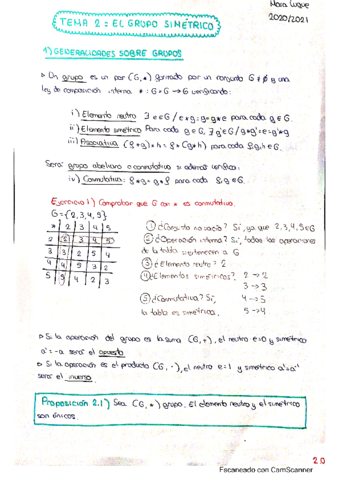 Mara Luque
2020/2021
TEMA 2: EL GRUPO SIMÉTRICO
1) GENERALIDADES SOBRE GRUPOS
Un grupo es un par (G,*) formado por un conjunto G≠∅ y una
ley de composición interna *: G×G→G verificando:
i) Elemento neutro ∃ e∈G / e*g=g*e para cada g∈G.
ii) Elemento simétrico Para cada g∈G, ∃ g'∈G / g*g'=e=g'*g
iii) Asociativa (f*g)*h = f*(g*h) para cada f,g,h∈G.
Será grupo abeliano o conmutativo si además verifica:
iv) Conmutativa: f*g=g*f para cada f,g∈G.
Ejercicio 1) Comprobar que G con * es conmutativa.
G={2,3,4,5}
* 2 3 4 5
2 2 3 4 5
3 3 2 5 4
4 4 5 3 2
5 5 4 2 3
① ¿Conjunto no vacío? Sí, ya que 2,3,4,5∈G
② ¿Operación interna? Sí, todas las operaciones
de la tabla pertenecen a G
③ ¿Elemento neutro = 2
④ ¿Elementos simétricos? 2→2
3→3
⑤ ¿Conmutativa? Sí, 4→5
la tabla es simétrica. 5→4
Si la operación del grupo es la suma (G,+), el neutro e=0 y simétrico
a'=-a será el opuesto
Si la operación es el producto (G,·), el neutro e=1 y simétrico a'=a⁻¹
será el inverso
Proposición 2.1) Sea (G,*) grupo. El elemento neutro y el simétrico
son únicos.
2.0
Escaneado con CamScanner